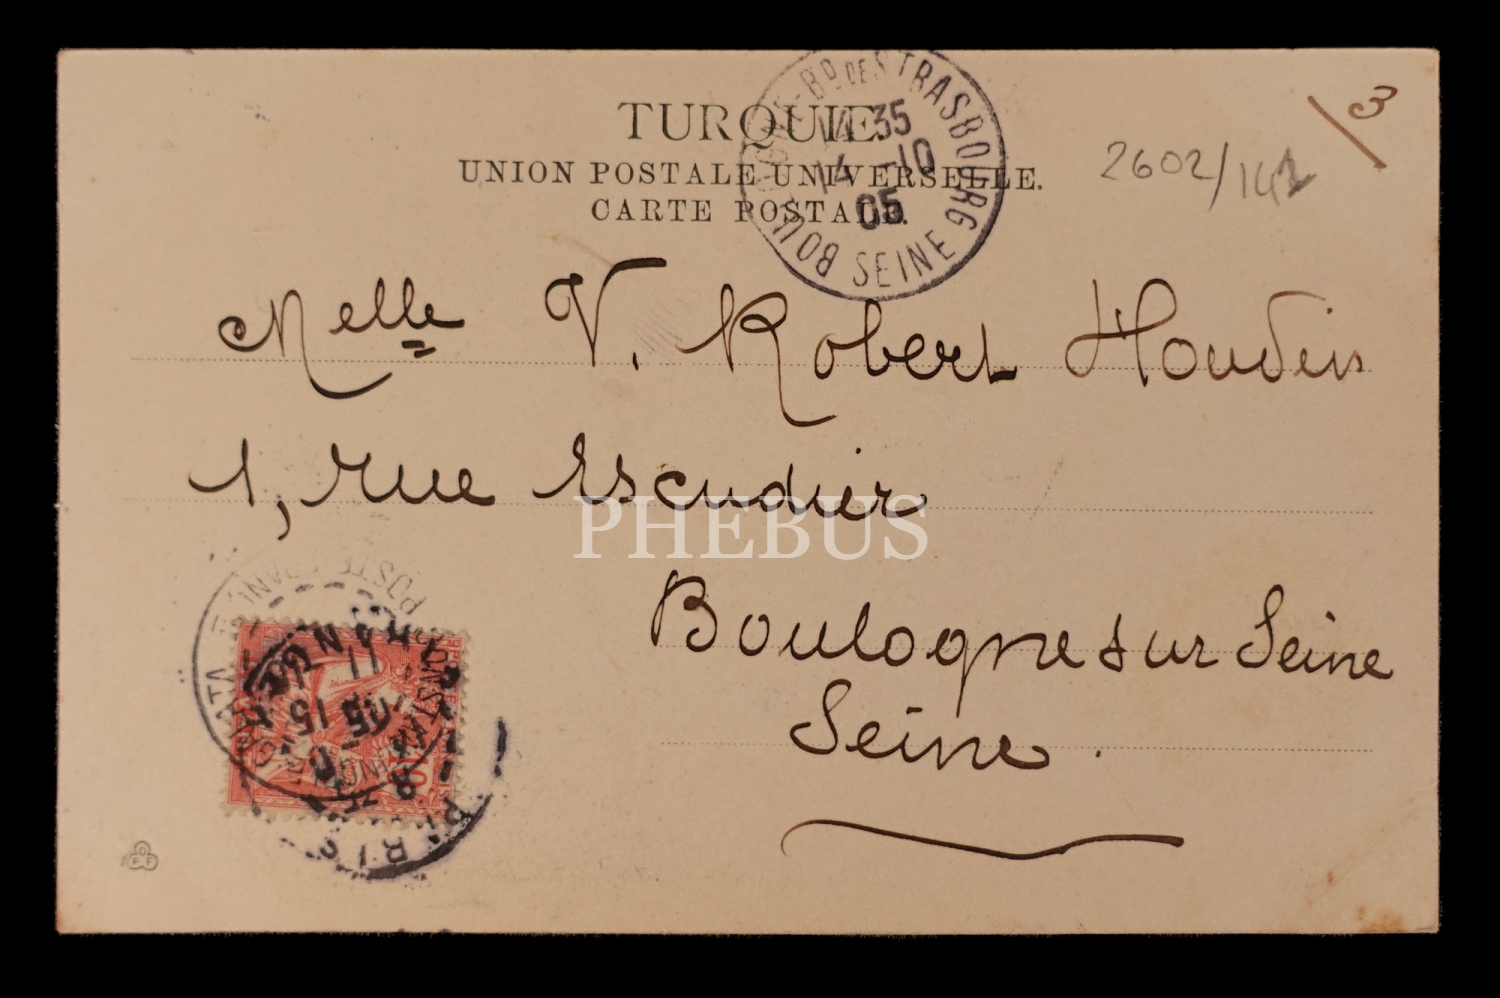 TURQUIE.
UNION POSTALE UNIVERSELLE.
CARTE POSTALE.
BOULOGNE-BD DE STRASBOURG
14 35
14 -10
05
SEINE
3
2602/142
Melle V. Robert Houdin
1, rue Escudier
Boulogne sur Seine
Seine.
PHEBUS
POSTE FRANÇAISE
GALATA
CONSTANTINOPLE
15
05
10
PARIS